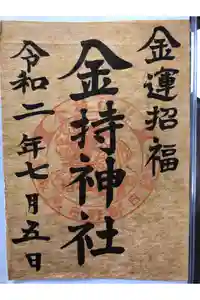 金運招福
金持神社
令和二年七月五日